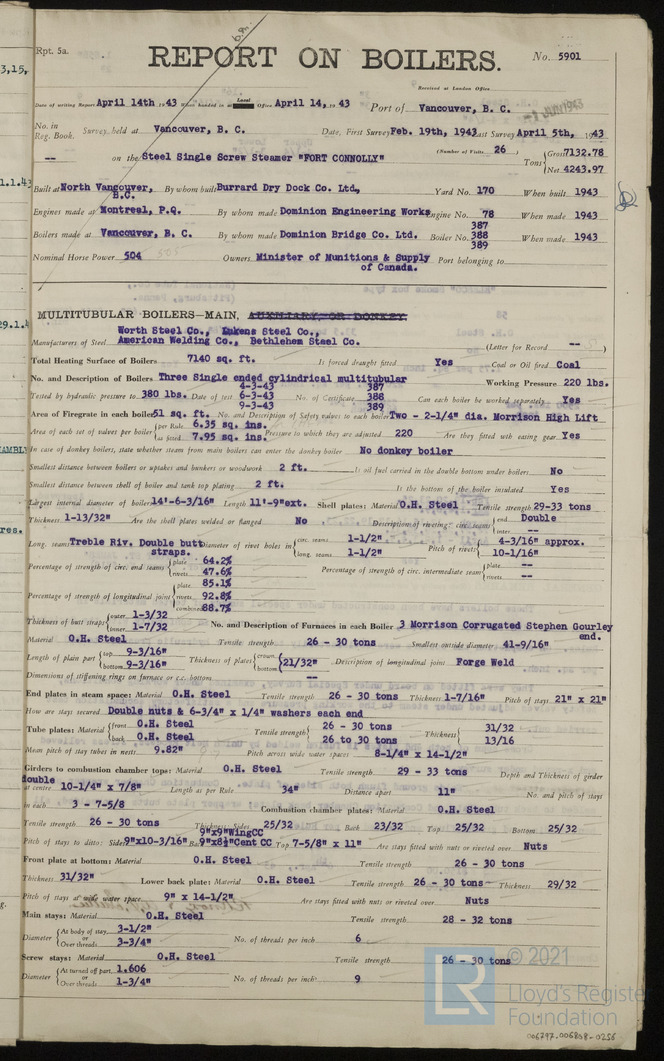 3,15,
1.1.43
29.1.4
AMBL
res.
g.
b.m.
Rpt. 5a.
REPORT ON BOILERS.
No. 5901
Received at London Office
Date of writing Report April 14th 1943 When handed in at Local Office April 14, 1943 Port of Vancouver, B. C.
JUN 1943
No. in Reg. Book. Survey held at Vancouver, B. C. Date, First Survey Feb. 19th, 1943 Last Survey April 5th, 1943
-- on the Steel Single Screw Steamer "FORT CONNOLLY" (Number of Visits 26 ) Tons { Gross 7132.78 Net 4243.97
Built at North Vancouver, B.C. By whom built Burrard Dry Dock Co. Ltd, Yard No. 170 When built 1943
Engines made at Montreal, P.Q. By whom made Dominion Engineering Works Engine No. 78 When made 1943
Boilers made at Vancouver, B. C. By whom made Dominion Bridge Co. Ltd. Boiler No. 387 388 389 When made 1943
Nominal Horse Power 504 Owners Minister of Munitions & Supply of Canada. Port belonging to
505
MULTITUBULAR BOILERS—MAIN, AUXILIARY, OR DONKEY
Manufacturers of Steel Worth Steel Co., Lukens Steel Co., American Welding Co., Bethlehem Steel Co. (Letter for Record -- )
Total Heating Surface of Boilers 7140 sq. ft. Is forced draught fitted Yes Coal or Oil fired Coal
No. and Description of Boilers Three Single ended cylindrical multitubular Working Pressure 220 lbs.
Tested by hydraulic pressure to 380 lbs. Date of test 4-3-43 6-3-43 9-3-43 No. of Certificate 387 388 389 Can each boiler be worked separately Yes
Area of Firegrate in each boiler 51 sq. ft. No. and Description of Safety valves to each boiler Two - 2-1/4" dia. Morrison High Lift
Area of each set of valves per boiler { per Rule 6.35 sq. ins. as fitted 7.95 sq. ins. Pressure to which they are adjusted 220 Are they fitted with easing gear Yes
In case of donkey boilers, state whether steam from main boilers can enter the donkey boiler No donkey boiler
Smallest distance between boilers or uptakes and bunkers or woodwork 2 ft. Is oil fuel carried in the double bottom under boilers No
Smallest distance between shell of boiler and tank top plating 2 ft. Is the bottom of the boiler insulated Yes
Largest internal diameter of boilers 14'-6-3/16" Length 11'-9"ext. Shell plates: Material O.H. Steel Tensile strength 29-33 tons
Thickness 1-13/32" Are the shell plates welded or flanged No Description of riveting: circ. seams { end Double inter. --
Long. seams Treble Riv. Double butt straps. Diameter of rivet holes in { circ. seams 1-1/2" long. seams 1-1/2" Pitch of rivets { 4-3/16" approx. 10-1/16"
Percentage of strength of circ. end seams { plate 64.2% rivets 47.6% Percentage of strength of circ. intermediate seam { plate -- rivets --
Percentage of strength of longitudinal joint { plate 85.1% rivets 92.8% combined 88.7%
Thickness of butt straps { outer 1-3/32 inner 1-7/32 No. and Description of Furnaces in each Boiler 3 Morrison Corrugated Stephen Gourley end.
Material O.H. Steel Tensile strength 26 - 30 tons Smallest outside diameter 41-9/16"
Length of plain part { top 9-3/16" bottom 9-3/16" Thickness of plates { crown bottom } 21/32" Description of longitudinal joint Forge Weld
Dimensions of stiffening rings on furnace or c.c. bottom --
End plates in steam space: Material O.H. Steel Tensile strength 26 - 30 tons Thickness 1-7/16" Pitch of stays 21" x 21"
How are stays secured Double nuts & 6-3/4" x 1/4" washers each end
Tube plates: Material { front O.H. Steel back O.H. Steel Tensile strength { 26 - 30 tons 26 to 30 tons Thickness { 31/32 13/16
Mean pitch of stay tubes in nests 9.82" Pitch across wide water spaces 8-1/4" x 14-1/2"
Girders to combustion chamber tops: Material O.H. Steel Tensile strength 29 - 33 tons Depth and Thickness of girder
double
at centre 10-1/4" x 7/8" Length as per Rule 34" Distance apart 11" No. and pitch of stays
in each 3 - 7-5/8 Combustion chamber plates: Material O.H. Steel
Tensile strength 26 - 30 tons Thickness: Sides 25/32 Back 23/32 Top 25/32 Bottom 25/32
Pitch of stays to ditto: Sides 9"x10-3/16" Back 9"x9"WingCC 9"x8½"Cent CC Top 7-5/8" x 11" Are stays fitted with nuts or riveted over Nuts
Front plate at bottom: Material O.H. Steel Tensile strength 26 - 30 tons
Thickness 31/32" Lower back plate: Material O.H. Steel Tensile strength 26 - 30 tons Thickness 29/32
Pitch of stays at wide water space 9" x 14-1/2" Are stays fitted with nuts or riveted over Nuts
Main stays: Material O.H. Steel Tensile strength 28 - 32 tons
Diameter { At body of stay, 3-1/2" or Over threads 3-3/4" No. of threads per inch 6
Screw stays: Material O.H. Steel Tensile strength 26 - 30 tons
Diameter { At turned off part, 1.606 or Over threads 1-3/4" No. of threads per inch 9
© 2021
LR
Lloyd's Register
Foundation
006797-006808-0256